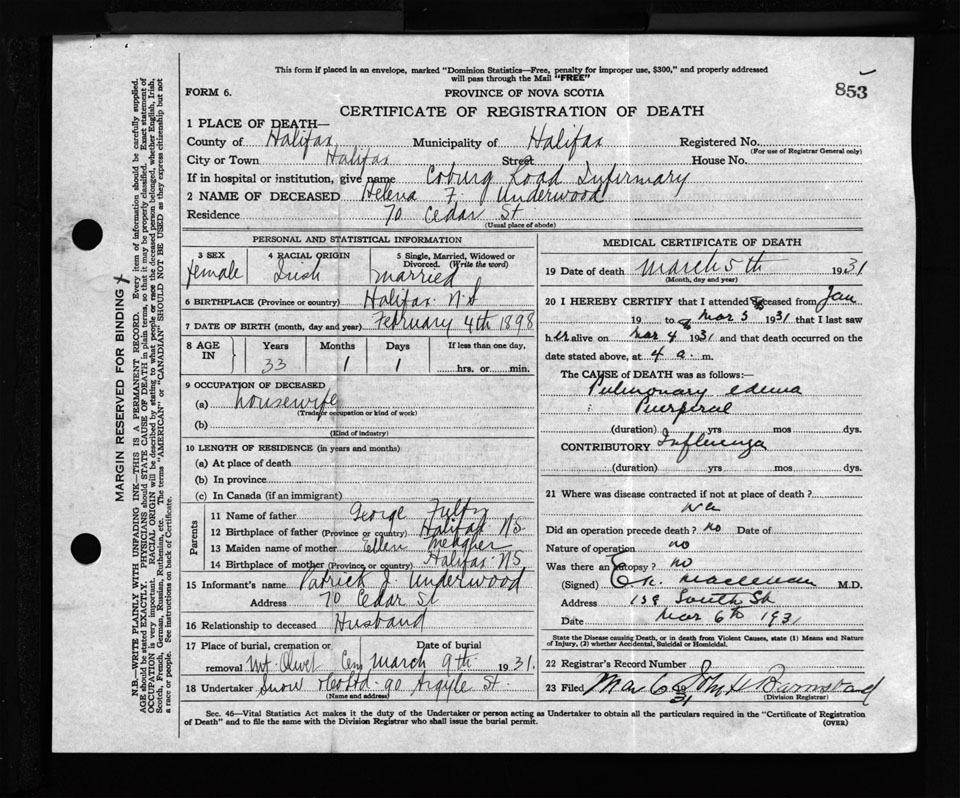 This form if placed in an envelope, marked "Dominion Statistics—Free, penalty for improper use, $300," and properly addressed
will pass through the Mail "FREE"
FORM 6.
PROVINCE OF NOVA SCOTIA
853
CERTIFICATE OF REGISTRATION OF DEATH
1 PLACE OF DEATH—
County of Halifax Municipality of Halifax Registered No.
(For use of Registrar General only)
City or Town Halifax Street House No.
If in hospital or institution, give name Coburg Road Infirmary
2 NAME OF DECEASED Helena F Underwood
Residence 70 Cedar St
(Usual place of abode)
PERSONAL AND STATISTICAL INFORMATION
3 SEX female
4 RACIAL ORIGIN Irish
5 Single, Married, Widowed or
Divorced. (Write the word)
married
6 BIRTHPLACE (Province or country) Halifax N.S
7 DATE OF BIRTH (month, day and year) February 4th 1898
8 AGE IN Years Months Days If less than one day,
33 1 1 hrs. or min.
9 OCCUPATION OF DECEASED
(a) housewife
(Trade, occupation or kind of work)
(b)
(Kind of industry)
10 LENGTH OF RESIDENCE (in years and months)
(a) At place of death
(b) In province
(c) In Canada (if an immigrant)
Parents
11 Name of father George Fultz
12 Birthplace of father (Province or country) Halifax N.S.
13 Maiden name of mother Ellen Meagher
14 Birthplace of mother (Province or country) Halifax N.S.
15 Informant's name Patrick J. Underwood
Address 70 Cedar St
16 Relationship to deceased Husband
17 Place of burial, cremation or Date of burial
removal Mt. Olivet Cem March 9th 1931.
18 Undertaker Snow & Co Ltd. 90 Argyle St.
(Name and address)
MEDICAL CERTIFICATE OF DEATH
19 Date of death March 5th 1931
(Month, day and year)
20 I HEREBY CERTIFY that I attended deceased from Jan
19 to Mar 5 1931 that I last saw
h er alive on Mar 4 1931 and that death occurred on the
date stated above, at 4 a. m.
The CAUSE of DEATH was as follows:
Pulmonary edema
Puerperal
(duration) yrs mos dys.
CONTRIBUTORY Influenza
(duration) yrs mos dys.
21 Where was disease contracted if not at place of death?
Did an operation precede death? no Date of
Nature of operation no
Was there an autopsy? no
(Signed) M.D.
Address South St
Date Mar 6th 1931
State the Disease causing Death, or in death from Violent Causes, state (1) Means and Nature
of Injury, (2) whether Accidental, Suicidal or Homicidal.
22 Registrar's Record Number
23 Filed Mar 6 31 John H Barnstead
(Division Registrar)
Sec. 46—Vital Statistics Act makes it the duty of the Undertaker or person acting as Undertaker to obtain all the particulars required in the "Certificate of Registration
of Death" and to file the same with the Division Registrar who shall issue the burial permit.
(OVER)
MARGIN RESERVED FOR BINDING
N.B.—WRITE PLAINLY WITH UNFADING INK—THIS IS A PERMANENT RECORD. Every item of information should be carefully supplied.
AGE should be stated EXACTLY. PHYSICIANS should STATE CAUSE OF DEATH in plain terms, so that it may be properly classified. Exact statement of
OCCUPATION is very important. RACIAL ORIGIN will be described by stating to what people or race the deceased person belonged, whether English, Irish,
Scotch, French, German, Russian, Ruthenian, etc. The terms "AMERICAN" or "CANADIAN" SHOULD NOT BE USED as they express citizenship but not
a race or people. See instructions on back of Certificate.